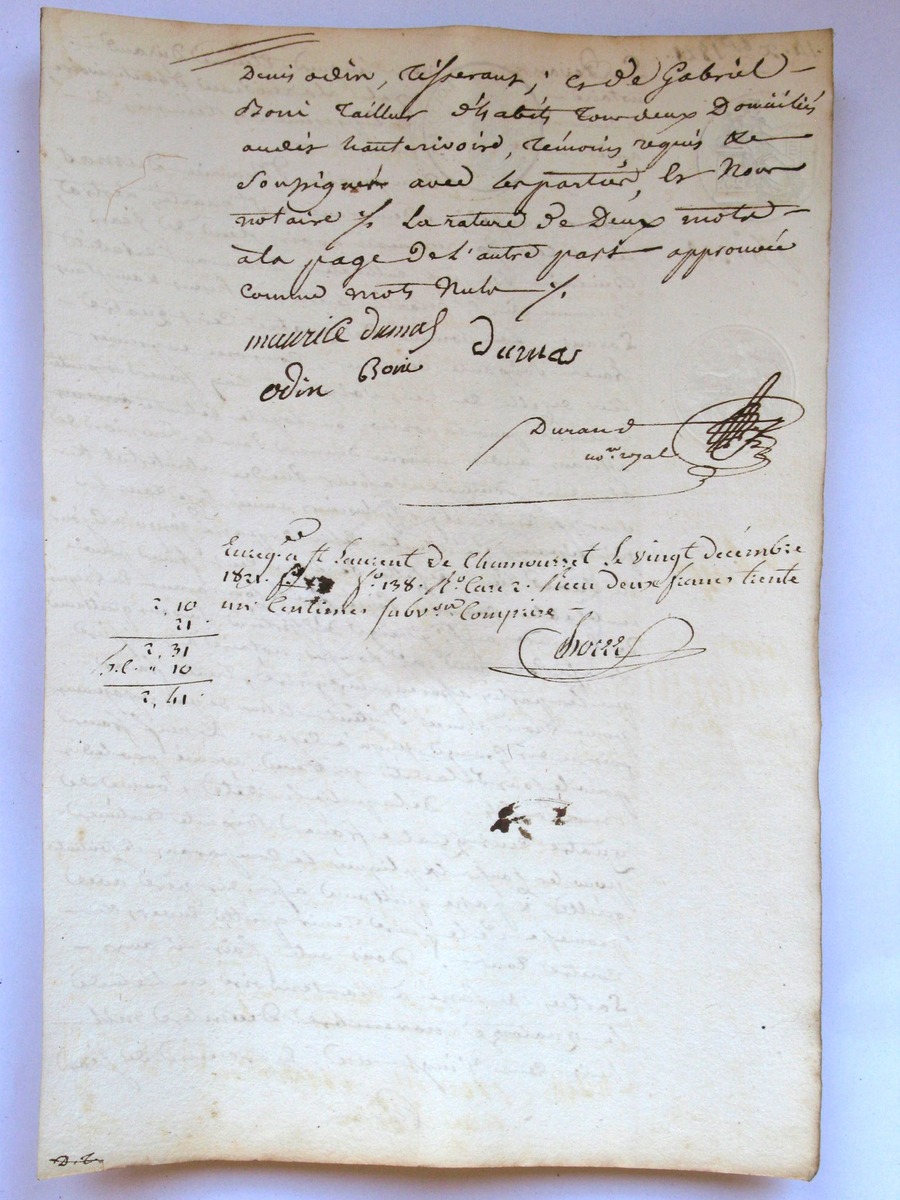 Denis odin, tisserant, et de Gabriel
Boni tailleur d'habits tous deux Domiciliés
audit hauterivoire, témoins requis de
Soussigner avec les parties, Et Nous
notaire ·/. La rature de Deux mots
a la page de l'autre part approuvée
comme mots Nuls ·/.
maurice dumas
Dumas
odin Boni
Durand
nore royal
Enregé a St Laurent de Chamousset le vingt décembre
1821. fo 138. Ro Case 2. Reçu deux francs trente
un Centimes subvon Comprise
2,10
21.
2,31
10
2,41.
D.T.